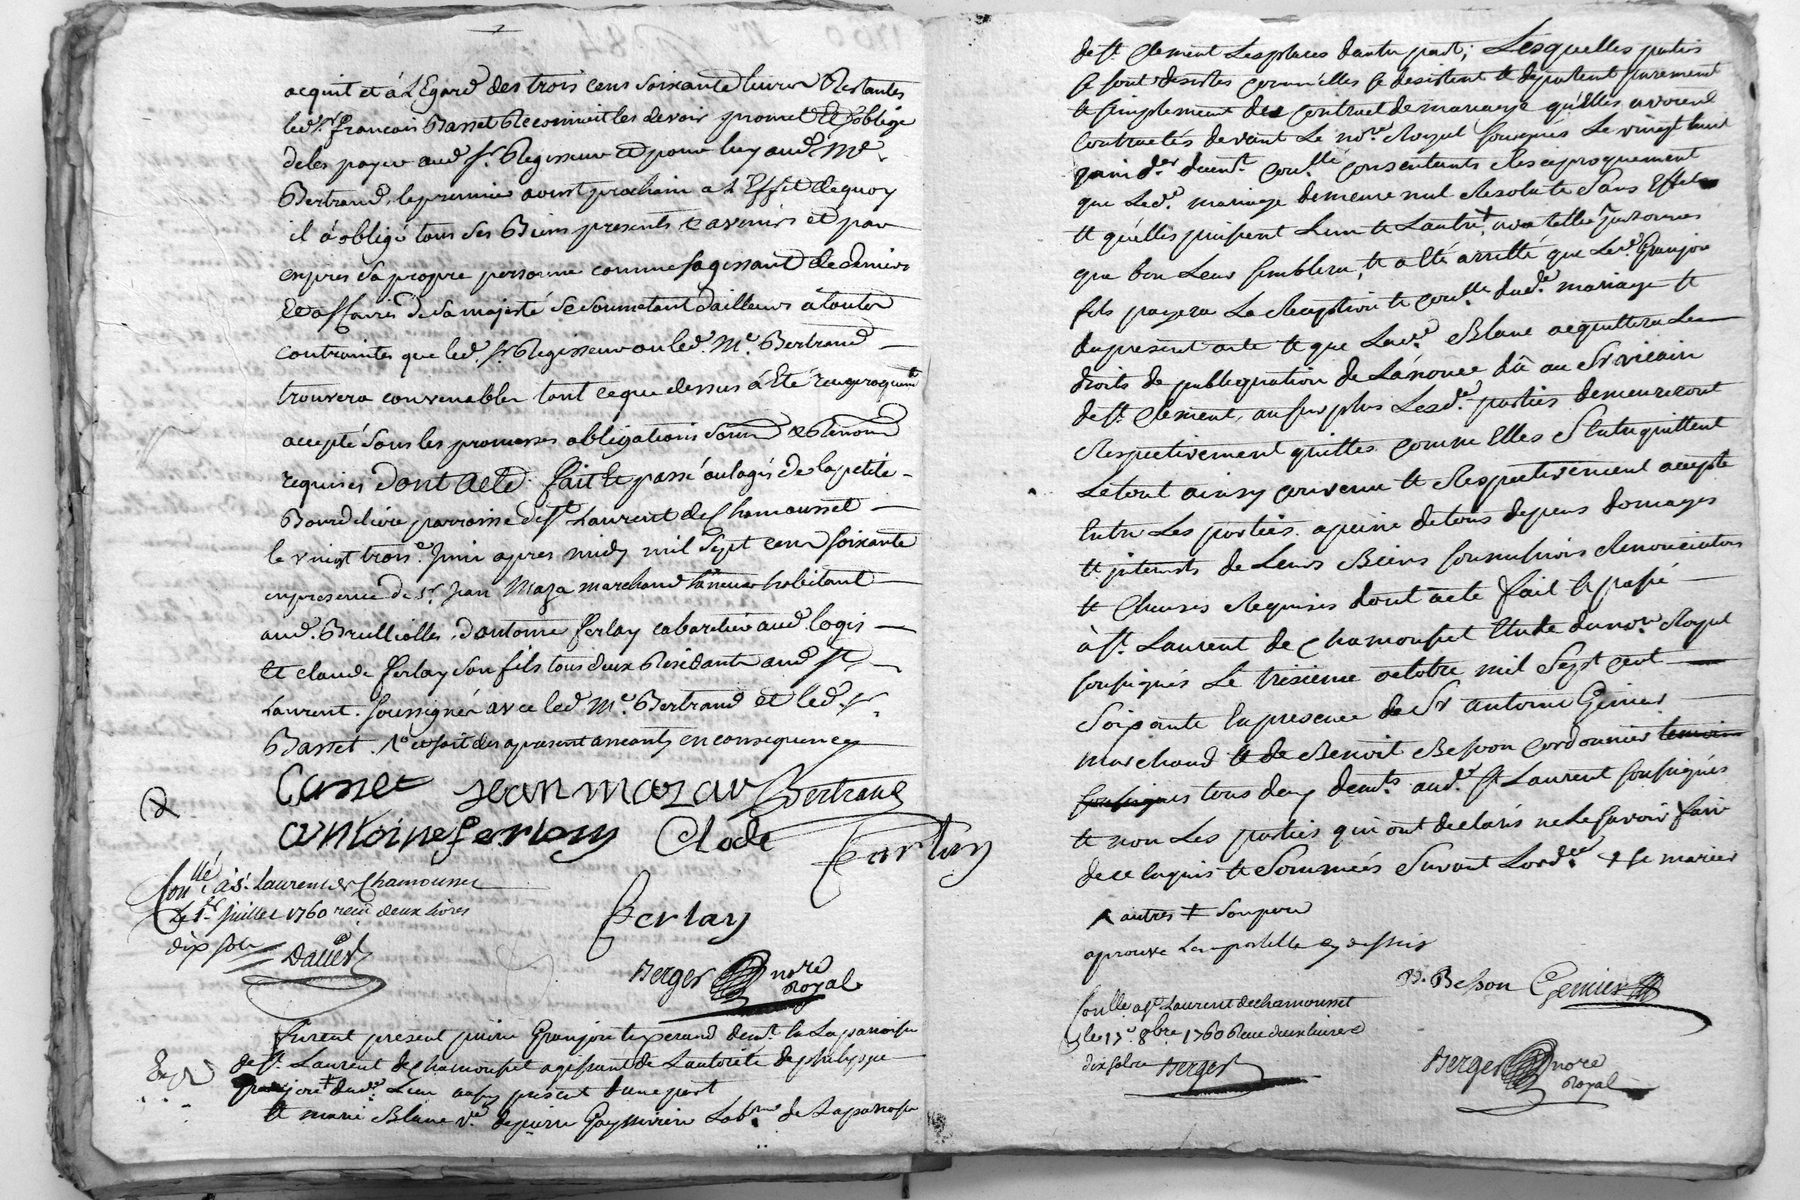 acquit et à L'Egard des trois cens soixante livres Restantes
led. sr. françois Basset Reconnoit les devoir promet et s'oblige
de les payer aud. sr. Regisseur et pour luy aud. Me.
Bertrand, le premier aoust prochain a L'Effet de quoy
il à obligé tous ses Biens presents et avenirs et par
exprès sa propre personne comme s'agissant de deniers
et affaires de sa majesté se soumetant d'ailleurs à toutes
contraintes que led. sr. Regisseur ou led. Me. Bertrand
trouvera convenables tout ce que dessus à Eté reciproquemt
accepté sous les promesses obligations soum et Renond
requises dont acte. fait et passé au logis de la petite
Bourdeliere parroisse de st. Laurent de Chamousset
le vingt trois e. Juin apres midy mil sept cens soixante
en presence de sr. Jean Maza marchand habitant
aud. Brullioles, d'antoine ferlay cabaretier aud. logis
et claude ferlay son fils tous deux Residants aud. st.
Laurent. soussignés avec led. Me. Bertrand et led. sr.
Basset.
Basset Jean mazar Bertrand
antoine ferlay Clode ferlay
ferlay
Conllé à st. Laurent de Chamousset
le 1er Juillet 1760 reçu deux livres
dix sols
Berger nore
Royal
furent present pierre Granjon tixerand demt. en La paroisse
de st. Laurent de Chamousset agissant de L'autorité de philippe
granjon ‡ L'un aussy present d'une part
et marie Blanc ve. de pierre Labr. de La paroisse
de st. Clement Lesplaces d'autre part; Lesquelles parties
se sont desistés comm'elles se desistent et departent purement
et simplement du contract de mariage qu'elles avoient
contractés devant Le nore. Royal soussignés Le vingt huit
juin der. duemt. conllé. consentants Reciproquement
que Led. mariage demeure nul Resolu et sans Effet
et qu'elles puissent L'un et L'autre + avec telles personnes
que bon Leur semblera, et a été arretté que Led. Granjon
fils payera La Reception et conlle. dud. mariage et
du present acte et que Lad. Blanc acquittera Les
droits de publiquation de L'anonce dû au Sr vicaire
de st. Clement, au surplus Lesd. parties demeureront
Respectivement quittes comme Elles s'Entrequittent
Le tout ainsy convenu et Respectivement accepté
Entre Les parties. a peine de tous depens domages
et interests de Leurs Biens soumissions Renonciations
et Clauses Requises dont acte fait et passé
à st. Laurent de Chamousset Etude du nore. Royal
soussignés Le treisieme octobre mil sept cent
soixante En presence de Sr antoine Genier
marchand et de Benoit Besson cordonnier temoins
soussignés tous deux demts. aud. st Laurent soussignés
et non Les parties qui ont declarés ne Le savoir faire
de ce Enquis et sommés suivant L'ordce. + se marier
autres ‡ son pere
aprouve La postille cy dessus
B. Besson Genier
Conllé a st Laurent de chamousset
le 17e. 8bre 1760 Reçu deux livres
dix sols Berger
Berger nore
Royal